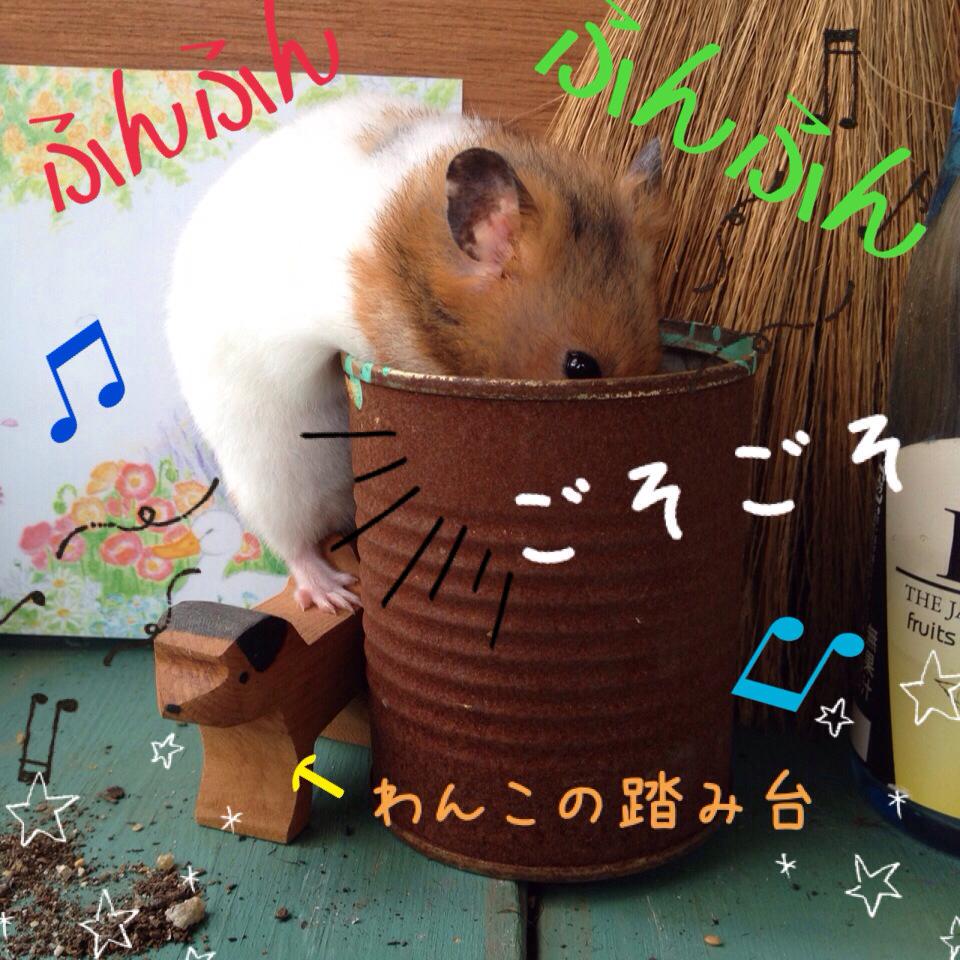 ふんふん
ふんふん
ごそごそ
THE JA
fruits
わんこの踏み台